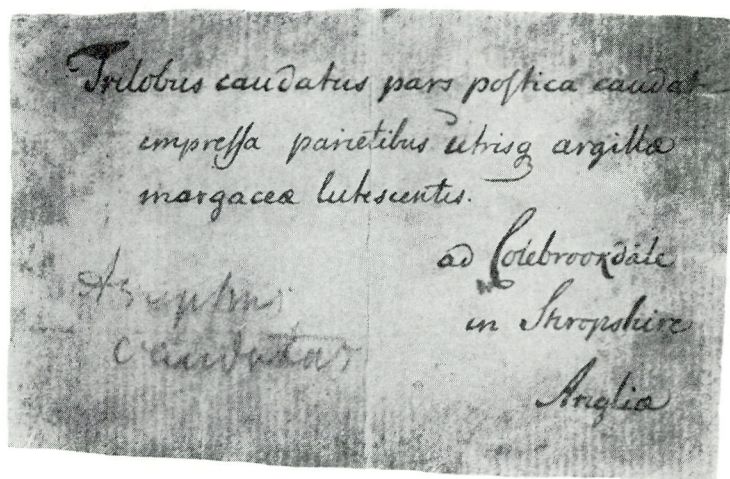 Trilobus caudatus pars postica caudat
empressa parietibus utrisq argillæ
margaceæ lutescentis.
ad Colebrookdale
in Shropshire
Angliæ
caudatus